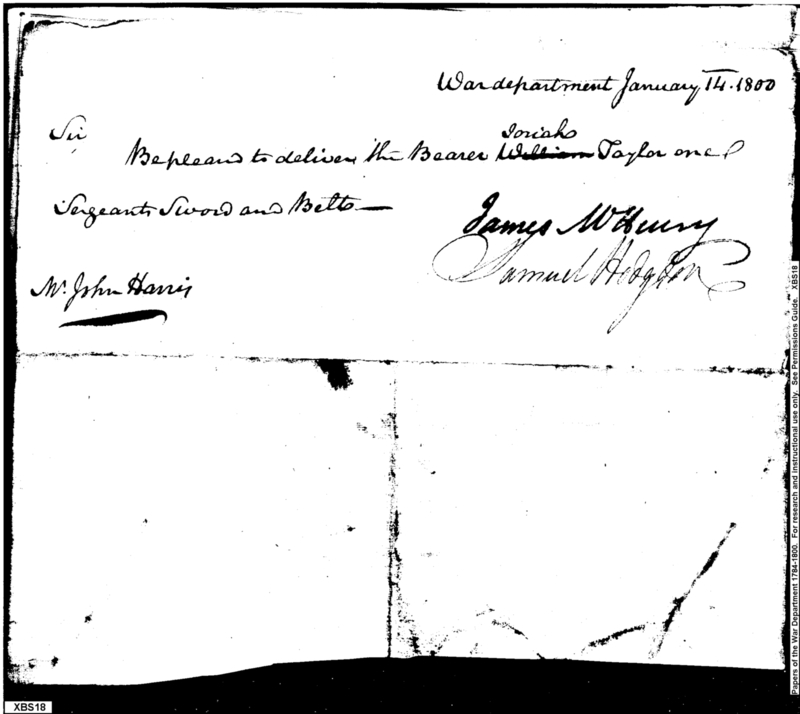 War department January 14. 1800
Sir
Josiah
Be pleased to deliver the Bearer William Taylor one
Sergeants Sword and Belt —
James McHenry
Samuel Hodgdon
Mr. John Harris
XBS18
Papers of the War Department 1784-1800. For research and instructional use only. See Permissions Guide. XBS18